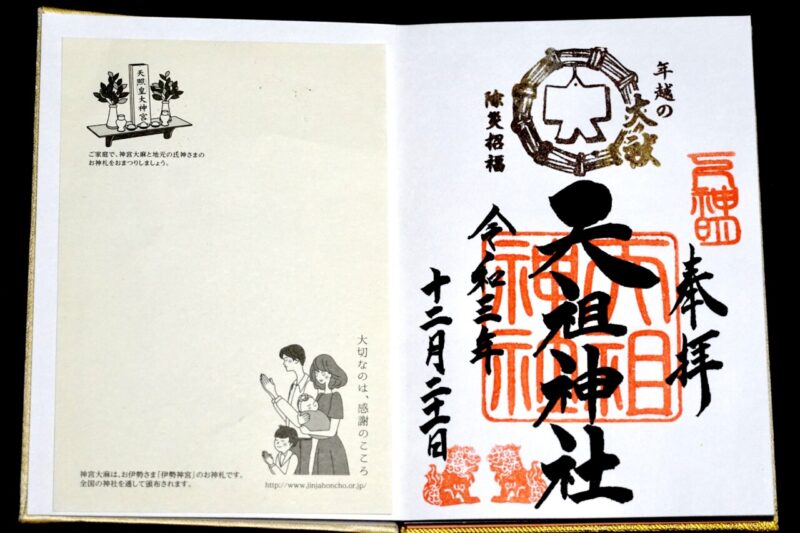 天照皇大神宮
ご家庭で、神宮大麻と地元の氏神さまの
お神札をおまつりしましょう。
大切なのは、感謝のこころ
神宮大麻は、お伊勢さま「伊勢神宮」のお神札です。
全国の神社を通して頒布されます。
http://www.jinjahoncho.or.jp/
元神明
奉拝
年越の
大祓
除災招福
天祖神社
天祖神社
令和三年
十二月二十一日